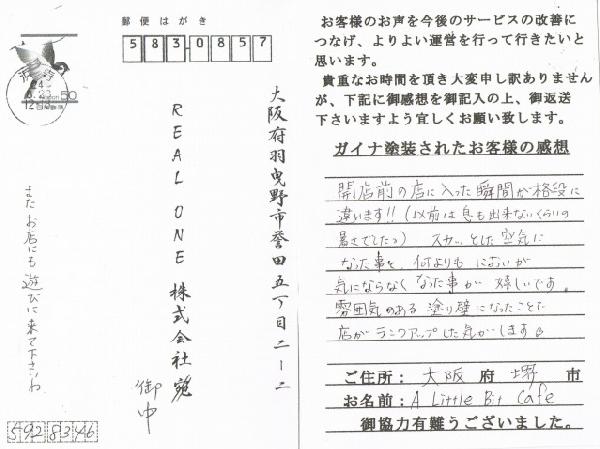 郵便はがき
583-0857
50
大阪府羽曳野市誉田五丁目二ー二
REAL ONE 株式会社 宛
御中
またお店にも遊びに来て下さいね
5928346
お客様のお声を今後のサービスの改善に
つなげ、よりよい運営を行って行きたいと
思います。
貴重なお時間を頂き大変申し訳ありません
が、下記に御感想を御記入の上、御返送
下さいますよう宜しくお願い致します。
ガイナ塗装されたお客様の感想
開店前の店に入った瞬間が格段に
違います!!(以前は息も出来ないくらいの
暑さでした) スカッとした空気に
なった事と、何よりもにおいが
気にならなくなった事が嬉しいです。
雰囲気のある塗り壁になったことで
店がランクアップした気がします
ご住所: 大阪 府 堺 市
お名前: A Little Bit Cafe
御協力有難うございました。